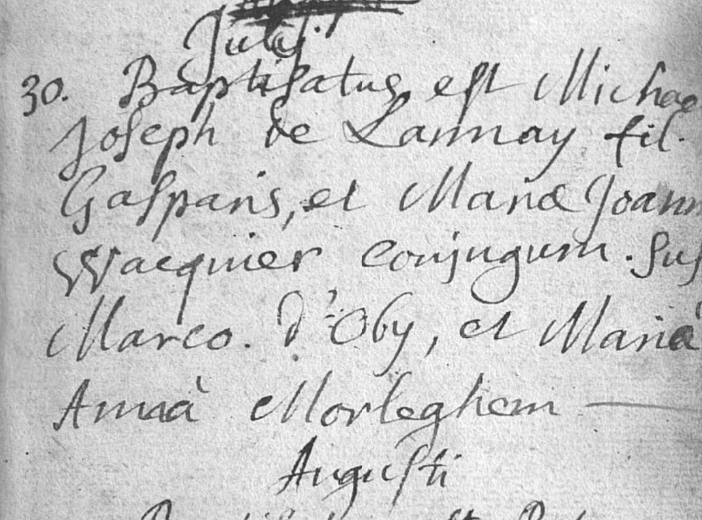 Julij.
30. Baptisatus est Michae
Joseph de Lannay fil.
Gasparis, et Mariæ Joann
Wacquier conjugum. Sus
Marco. d'Oby, et Mariâ
Annâ Morleghem
Augusti